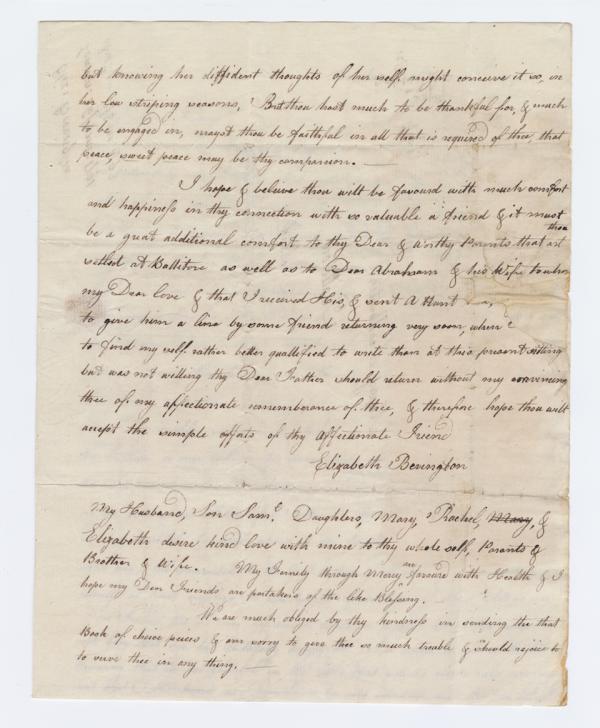 but knowing her diffident thoughts of her self might conceive it so, in
her low striping seasons, But thou hast much to be thankful for, & much
to be engaged in, mayst thou be faithful in all that is required of thee that
peace, sweet peace may be thy companion.
I hope & beleive thou wilt be favour'd with much comfort
and happiness in thy connection with so valuable a friend & it must
be a great additional comfort to thy Dear & Worthy Parents that thou art
setled at Ballitore as well as to Dear Abraham & his Wife to whom
my Dear love & that I received His, & sent A Hunt
to give him a line by some friend returning very soon, when
to find my self rather better quallified to write than at this present sitting
but was not willing thy Dear Father should return without my convincing
thee of my affectionate rememberance of thee, & therefore hope thou wilt
accept the simple efforts of thy affectionate Friend
Elizabeth Bevington
My Husband, Son Saml. Daughters, Mary, Rachel, Mary, &
Elizabeth desire kind love with mine to thy whole self, Parents &
Brother & Wife. My Family through Mercy are favour'd with Health & I
hope my Dear Friends are partakers of the like Blessing.
We are much obliged by thy kindness in sending the that
Book of choice peices & am sorry to give thee so much trouble & should rejoice to
to serve thee in any thing.